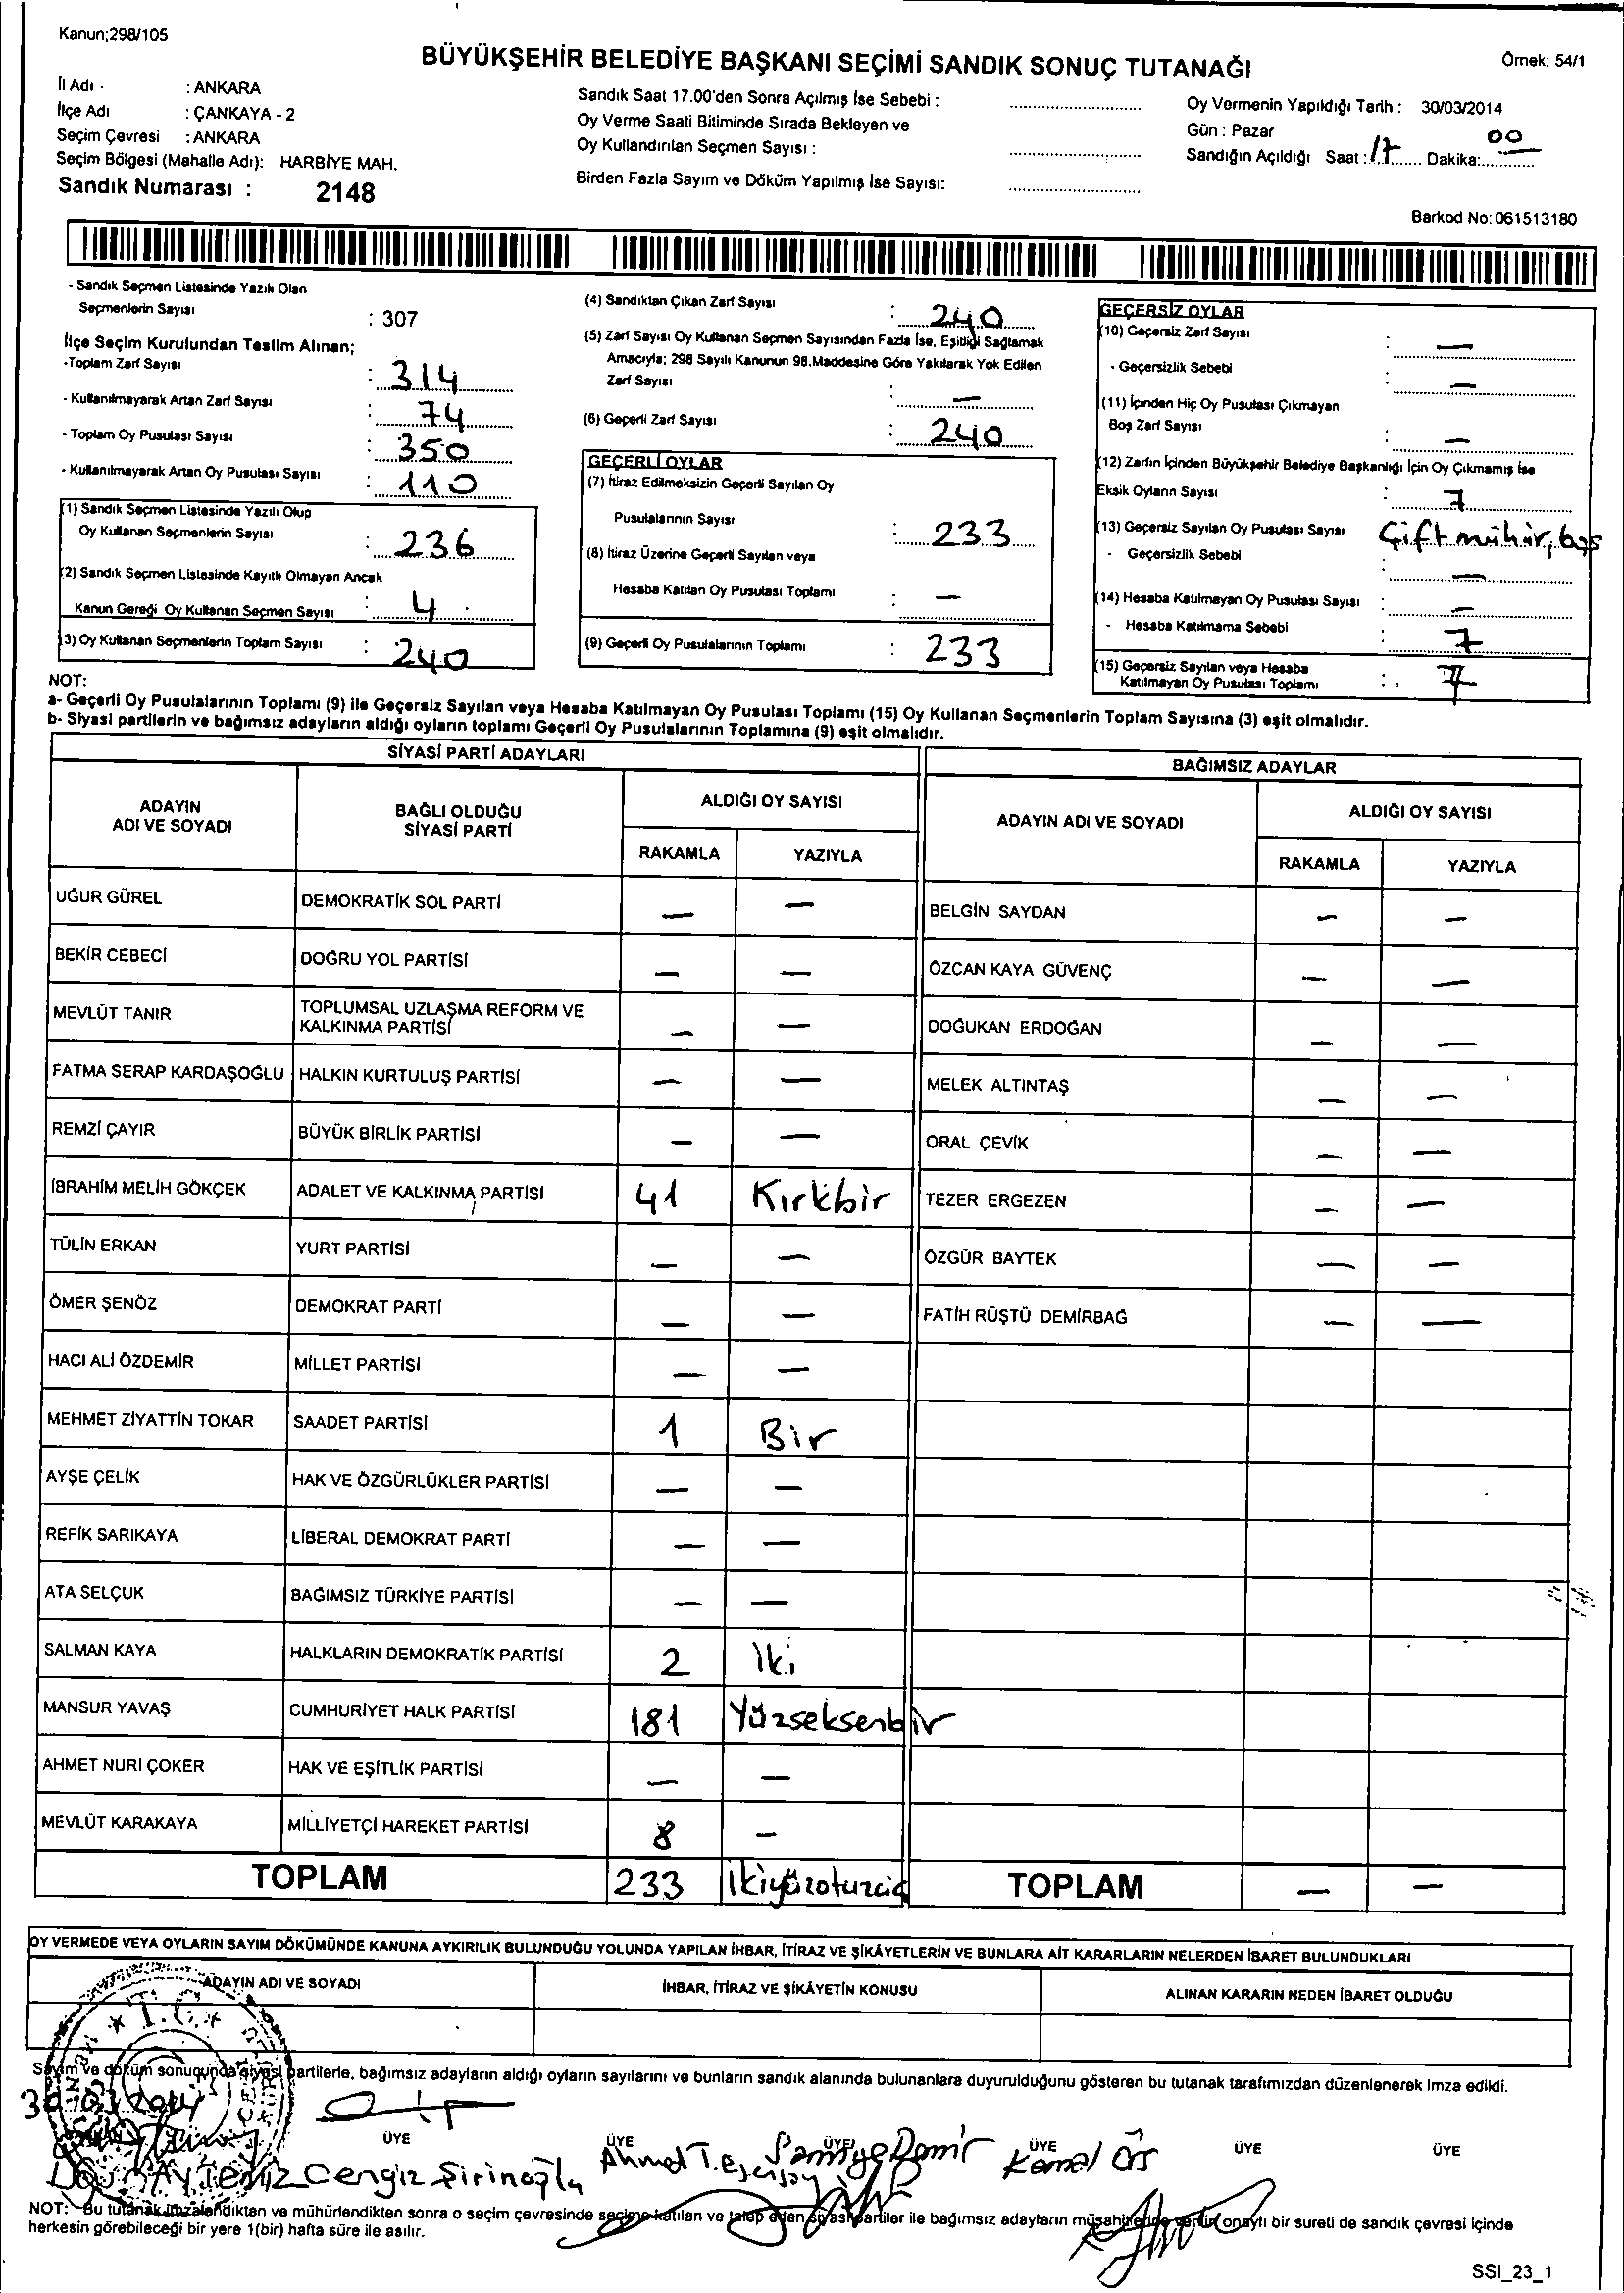 Kanun;298/105
BÜYÜKŞEHİR BELEDİYE BAŞKANI SEÇİMİ SANDIK SONUÇ TUTANAĞI
Örnek: 54/1
İl Adı : ANKARA
İlçe Adı : ÇANKAYA - 2
Seçim Çevresi : ANKARA
Seçim Bölgesi (Mahalle Adı): HARBİYE MAH.
Sandık Numarası : 2148
Sandık Saat 17.00'den Sonra Açılmış İse Sebebi :
Oy Verme Saati Bitiminde Sırada Bekleyen ve
Oy Kullandırılan Seçmen Sayısı :
Birden Fazla Sayım ve Döküm Yapılmış İse Sayısı:
Oy Vermenin Yapıldığı Tarih : 30/03/2014
Gün : Pazar
Sandığın Açıldığı Saat : 17 Dakika: 00
Barkod No: 061513180
- Sandık Seçmen Listesinde Yazılı Olan
Seçmenlerin Sayısı : 307
İlçe Seçim Kurulundan Teslim Alınan;
-Toplam Zarf Sayısı : 314
- Kullanılmayarak Artan Zarf Sayısı : 74
- Toplam Oy Pusulası Sayısı : 350
- Kullanılmayarak Artan Oy Pusulası Sayısı : 110
(1) Sandık Seçmen Listesinde Yazılı Olup
Oy Kullanan Seçmenlerin Sayısı : 236
(2) Sandık Seçmen Listesinde Kayıtlı Olmayan Ancak
Kanun Gereği Oy Kullanan Seçmen Sayısı : 4
(3) Oy Kullanan Seçmenlerin Toplam Sayısı : 240
(4) Sandıktan Çıkan Zarf Sayısı : 240
(5) Zarf Sayısı Oy Kullanan Seçmen Sayısından Fazla İse, Eşitliği Sağlamak
Amacıyla; 298 Sayılı Kanunun 98.Maddesine Göre Yakılarak Yok Edilen
Zarf Sayısı : —
(6) Geçerli Zarf Sayısı : 240
GEÇERLİ OYLAR
(7) İtiraz Edilmeksizin Geçerli Sayılan Oy
Pusulalarının Sayısı : 233
(8) İtiraz Üzerine Geçerli Sayılan veya
Hesaba Katılan Oy Pusulası Toplamı : —
(9) Geçerli Oy Pusulalarının Toplamı : 233
GEÇERSİZ OYLAR
(10) Geçersiz Zarf Sayısı : —
- Geçersizlik Sebebi : —
(11) İçinden Hiç Oy Pusulası Çıkmayan
Boş Zarf Sayısı : —
(12) Zarfın İçinden Büyükşehir Belediye Başkanlığı İçin Oy Çıkmamış İse
Eksik Oyların Sayısı : 7
(13) Geçersiz Sayılan Oy Pusulası Sayısı Çift mühür, boş
- Geçersizlik Sebebi : —
(14) Hesaba Katılmayan Oy Pusulası Sayısı : —
- Hesaba Katılmama Sebebi : 7
(15) Geçersiz Sayılan veya Hesaba
Katılmayan Oy Pusulası Toplamı : 7
NOT:
a- Geçerli Oy Pusulalarının Toplamı (9) ile Geçersiz Sayılan veya Hesaba Katılmayan Oy Pusulası Toplamı (15) Oy Kullanan Seçmenlerin Toplam Sayısına (3) eşit olmalıdır.
b- Siyasi partilerin ve bağımsız adayların aldığı oyların toplamı Geçerli Oy Pusulalarının Toplamına (9) eşit olmalıdır.
SİYASİ PARTİ ADAYLARI
ADAYIN ADI VE SOYADI BAĞLI OLDUĞU SİYASİ PARTİ ALDIĞI OY SAYISI
RAKAMLA YAZIYLA
UĞUR GÜREL DEMOKRATİK SOL PARTİ — —
BEKİR CEBECİ DOĞRU YOL PARTİSİ — —
MEVLÜT TANIR TOPLUMSAL UZLAŞMA REFORM VE KALKINMA PARTİSİ — —
FATMA SERAP KARDAŞOĞLU HALKIN KURTULUŞ PARTİSİ — —
REMZİ ÇAYIR BÜYÜK BİRLİK PARTİSİ — —
İBRAHİM MELİH GÖKÇEK ADALET VE KALKINMA PARTİSİ 41 Kırkbir
TÜLİN ERKAN YURT PARTİSİ — —
ÖMER ŞENÖZ DEMOKRAT PARTİ — —
HACI ALİ ÖZDEMİR MİLLET PARTİSİ — —
MEHMET ZİYATTİN TOKAR SAADET PARTİSİ 1 Bir
AYŞE ÇELİK HAK VE ÖZGÜRLÜKLER PARTİSİ — —
REFİK SARIKAYA LİBERAL DEMOKRAT PARTİ — —
ATA SELÇUK BAĞIMSIZ TÜRKİYE PARTİSİ — —
SALMAN KAYA HALKLARIN DEMOKRATİK PARTİSİ 2 İki
MANSUR YAVAŞ CUMHURİYET HALK PARTİSİ 181 Yüzseksenbir
AHMET NURİ ÇOKER HAK VE EŞİTLİK PARTİSİ — —
MEVLÜT KARAKAYA MİLLİYETÇİ HAREKET PARTİSİ 8 —
TOPLAM 233 İkiyüzotuzüç
BAĞIMSIZ ADAYLAR
ADAYIN ADI VE SOYADI ALDIĞI OY SAYISI
RAKAMLA YAZIYLA
BELGİN SAYDAN — —
ÖZCAN KAYA GÜVENÇ — —
DOĞUKAN ERDOĞAN — —
MELEK ALTINTAŞ — —
ORAL ÇEVİK — —
TEZER ERGEZEN — —
ÖZGÜR BAYTEK — —
FATİH RÜŞTÜ DEMİRBAĞ — —
TOPLAM — —
OY VERMEDE VEYA OYLARIN SAYIM DÖKÜMÜNDE KANUNA AYKIRILIK BULUNDUĞU YOLUNDA YAPILAN İHBAR, İTİRAZ VE ŞİKÂYETLERİN VE BUNLARA AİT KARARLARIN NELERDEN İBARET BULUNDUKLARI
ADAYIN ADI VE SOYADI İHBAR, İTİRAZ VE ŞİKÂYETİN KONUSU ALINAN KARARIN NEDEN İBARET OLDUĞU
T.C.
Sayım ve döküm sonucunda siyasi partilerle, bağımsız adayların aldığı oyların sayılarını ve bunların sandık alanında bulunanlara duyurulduğunu gösteren bu tutanak tarafımızdan düzenlenerek imza edildi.
30.03.2014
ÜYE ÜYE ÜYE ÜYE ÜYE ÜYE
Cengiz Şirinoğlu Ahmet T. Samiye Demir Kemal
NOT: Bu tutanak imzalandıktan ve mühürlendikten sonra o seçim çevresinde seçime katılan ve talep eden siyasi partiler ile bağımsız adayların müşahitlerine verilir, onaylı bir sureti de sandık çevresi içinde
herkesin görebileceği bir yere 1(bir) hafta süre ile asılır.
SSI_23_1